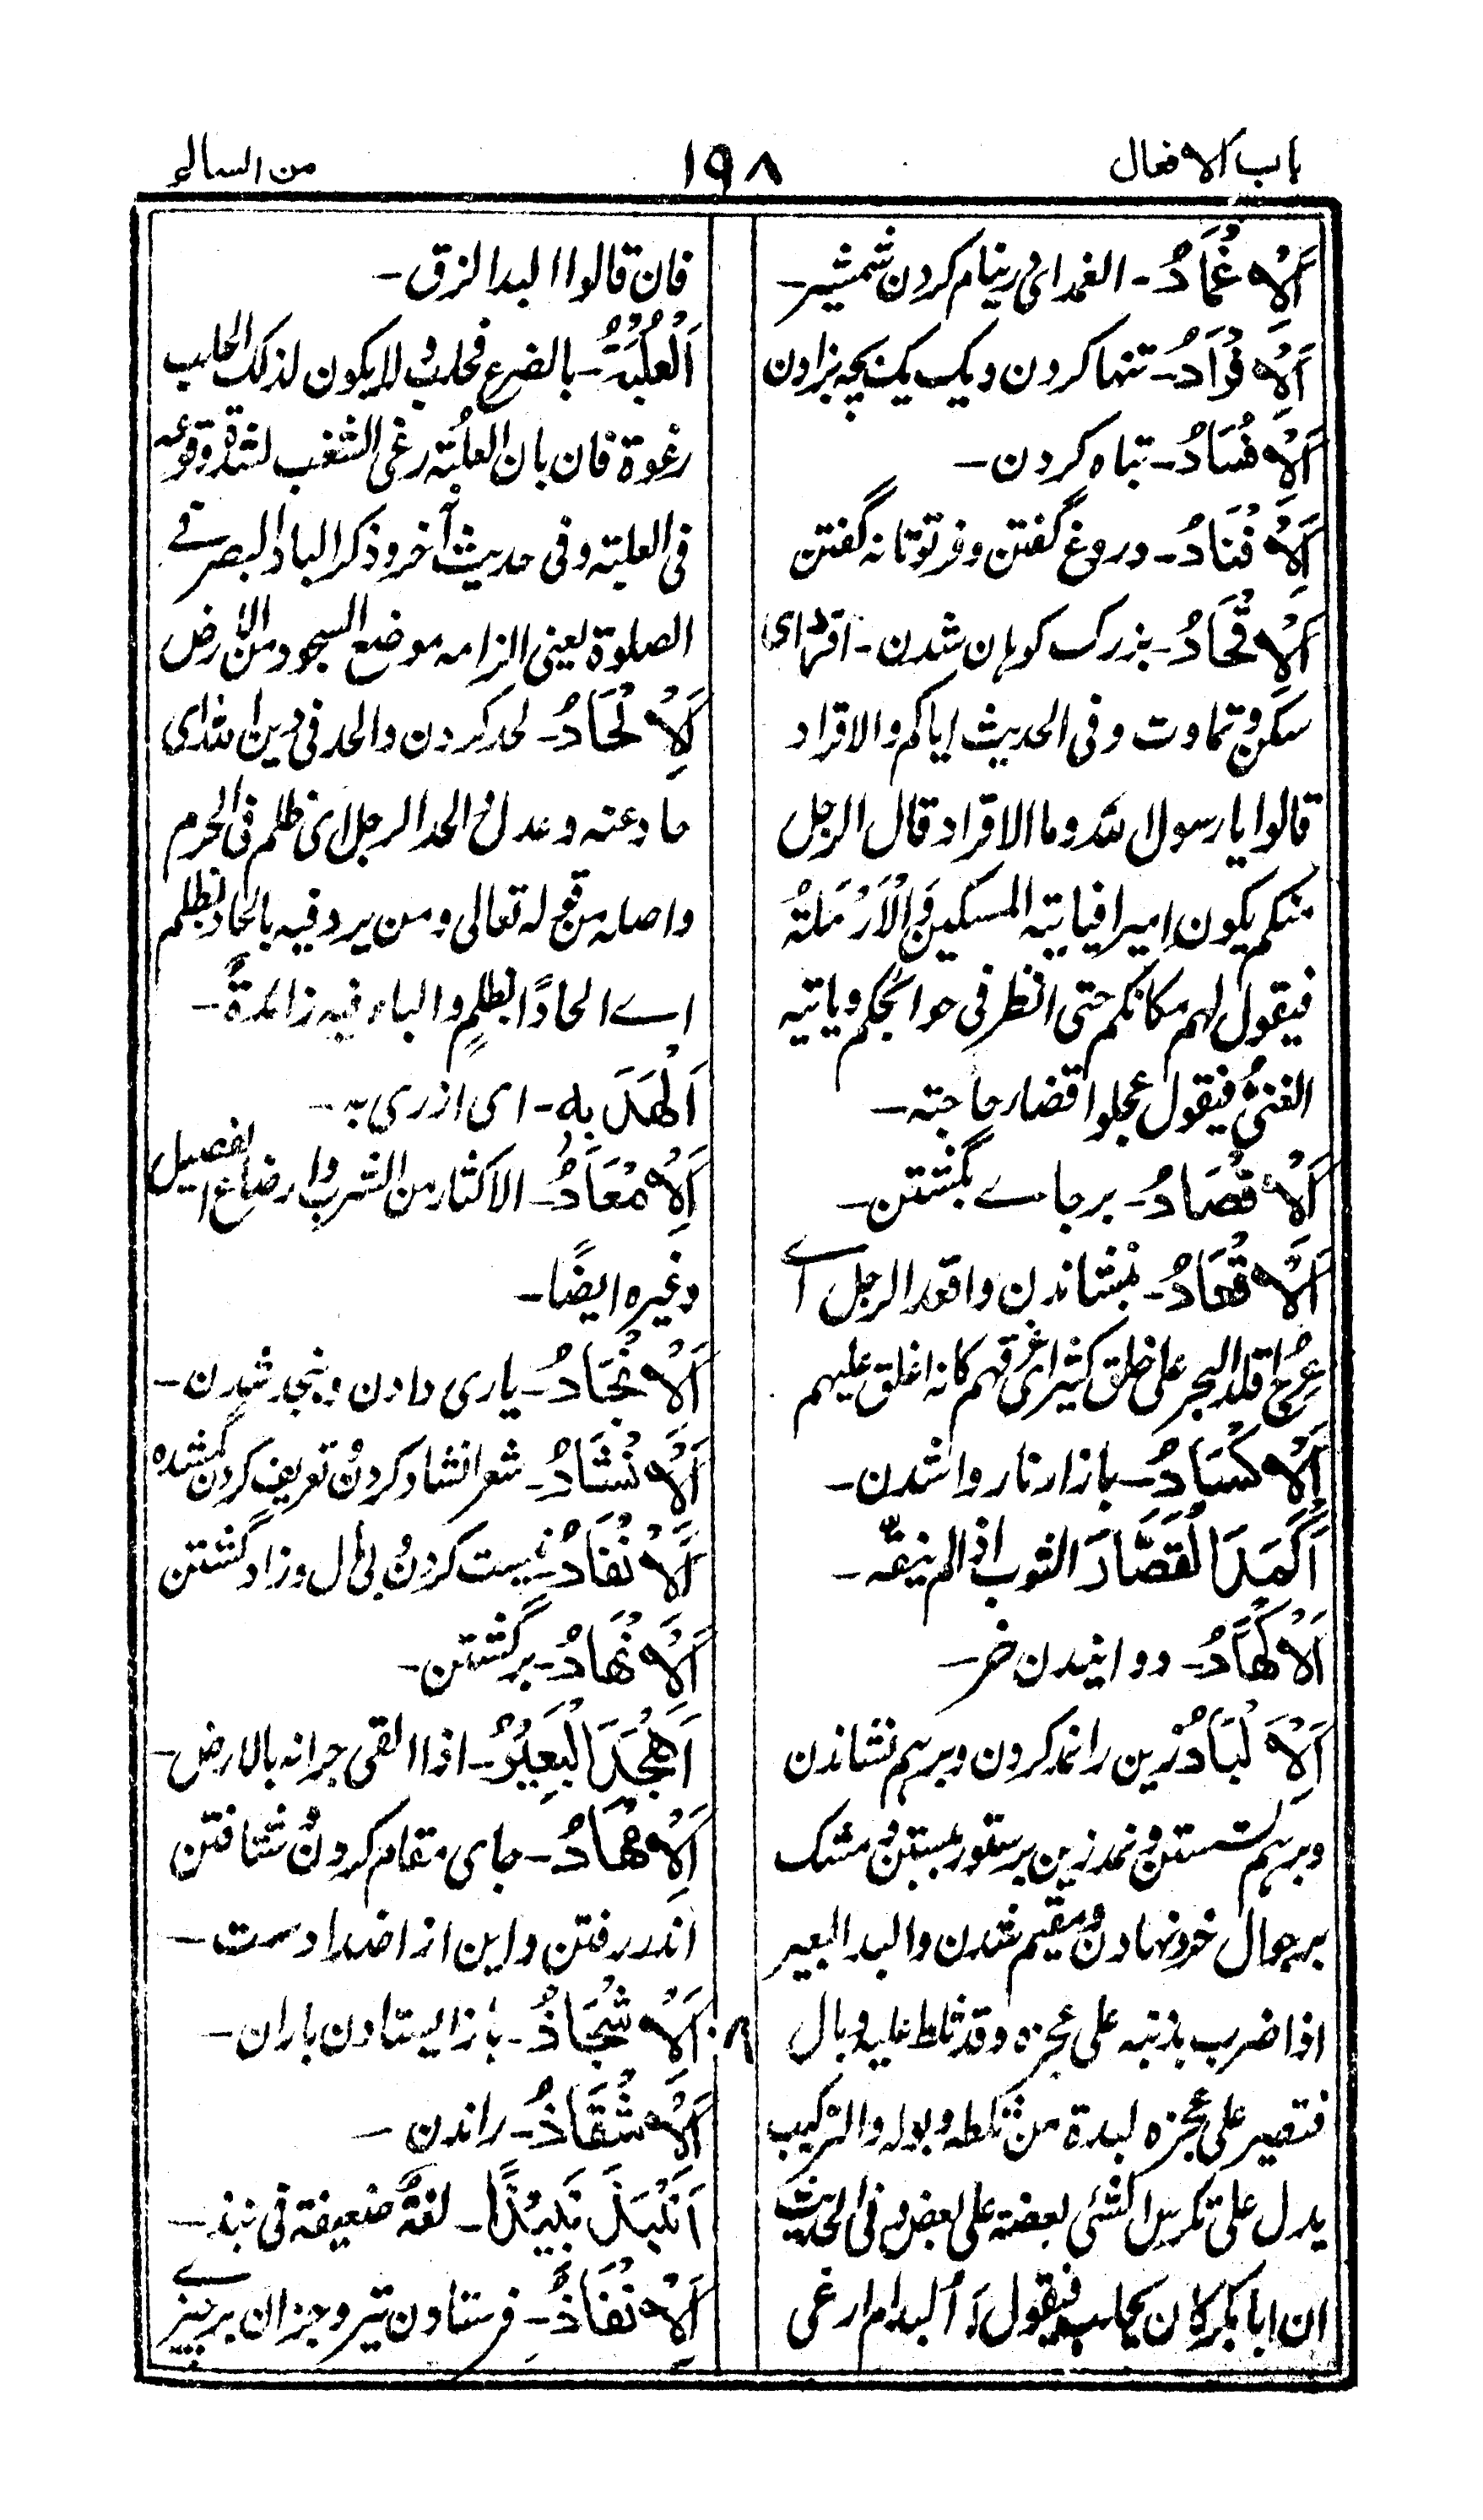 باب الافعال
۱۹۸
من السالم
اَلْاِغْمَادُ۔ الغمد ای در نیام کردن شمشیر۔
اَلْاِفْرَادُ۔ تنها کردن و یک یک بچه بزادن
اَلْاِفْسَادُ۔ تباه کردن۔
اَلْاِفْنَادُ۔ دروغ گفتن و فرتوتانه گفتن
اَلْاِقْحَادُ۔ بزرگ کوہان شدن۔ اقرد ای
سکن و تماوت و فی الحدیث ایاکم و الاقراد
قالوا یا رسول اللہ و ما الاقراد قال الرجل
منکم یکون امیرا فیاتیه المسکین و الْاَرْمَلَةُ
فیقول لهم مکانکم حتی انظر فی حوائجکم و یاتیه
الغنیُّ فیقول عجلوا قضاء حاجته۔
اَلْاِقْصَادُ۔ بر جاے بکشتن۔
اَلْاِقْعَادُ۔ بنشاندن و اقعد الرجل اے
عرج اقلد البحر علی خلق کثیر ای غرقهم کانه اغلق علیهم
اَلْاِکْسَادُ۔ بازار ناروا شدن۔
اَکْمَدَ الْقَصَّارَ الثوب اذا لم ینقّه۔
اَلْاِکْهَادُ۔ دوانیدن خر۔
اَلْاِلْبَادُ زین را نمد کردن و برہم نشاندن
و برہم نشستن و نمد زین بر ستور بستن و مشک
بر جوال خرد نهادن و مقیم شدن و البد البعیر
اذا ضرب بذنبه علی عجزہ و قد ثلط علیه و بال
فتصیر علی عجزہ لبدة من ثلطه و بوله و الترکیب
یدل علی تکرس الشئی بعضه علی بعض و فی الحدیث
ان ابا بکر کان یحلب فیقول ءَاُلبد ام ارغی
فان قالوا البد الزق۔
اَلْعُلْبَةُ۔ بالضرع فحلب و لا یکون لذلک الحلب
رغوة فان بان العلبُة رغی الشخب لشدة وقوعه
فی العلبته و فی حدیث آخر و ذکر الباد البصر فے
الصلوة یعنی الزامه موضع السجود من الارض
اَلْاِلْحَادُ۔ لحد کردن و الحد فی دین اللہ ای
حاد عنه و عدل و الحد الرجل ای ظلم فی الحرم
و اصله من قوله تعالی و من یرد فیه بالحاد بظلم
اے الحادًا بظلمٍ و الباء فیه زائدةٌ۔
اَلْهَدَ بِهٖ۔ ای ازری به۔
اَلْاِمْعَادُ۔ الاکثار من الشرب و ارضاع الفصیل
و غیره ایضًا۔
اَلْاِنْجَادُ۔ یاری دادن و بنجد شدن۔
اَلْاِنْشَادُ۔ شعر انشاد کردن و تعریف کردن گمشده
اَلْاِنْفَادُ۔ نیست کردن و بی مال و زاد گشتن
اَلْاِنْهَادُ۔ برگشتن۔
اَهْجَدَ الْبَعِیْرُ۔ اذا القی جرانه بالارض۔
اَلْاِهْمَادُ۔ جای مقام کردن و شتافتن
اندر رفتن و این از اضداد ست۔
۸۰ اَلْاِشْجَاذُ۔ باز ایستادن باران۔
اَلْاِشْقَاذُ۔ راندن۔
اَنْبَذَ نَبِیْذًا۔ لغةٌ ضعیفة فی نبذ۔
اَلْاِنْفَاذُ۔ فرستادن تیر و جزان بر چیزے